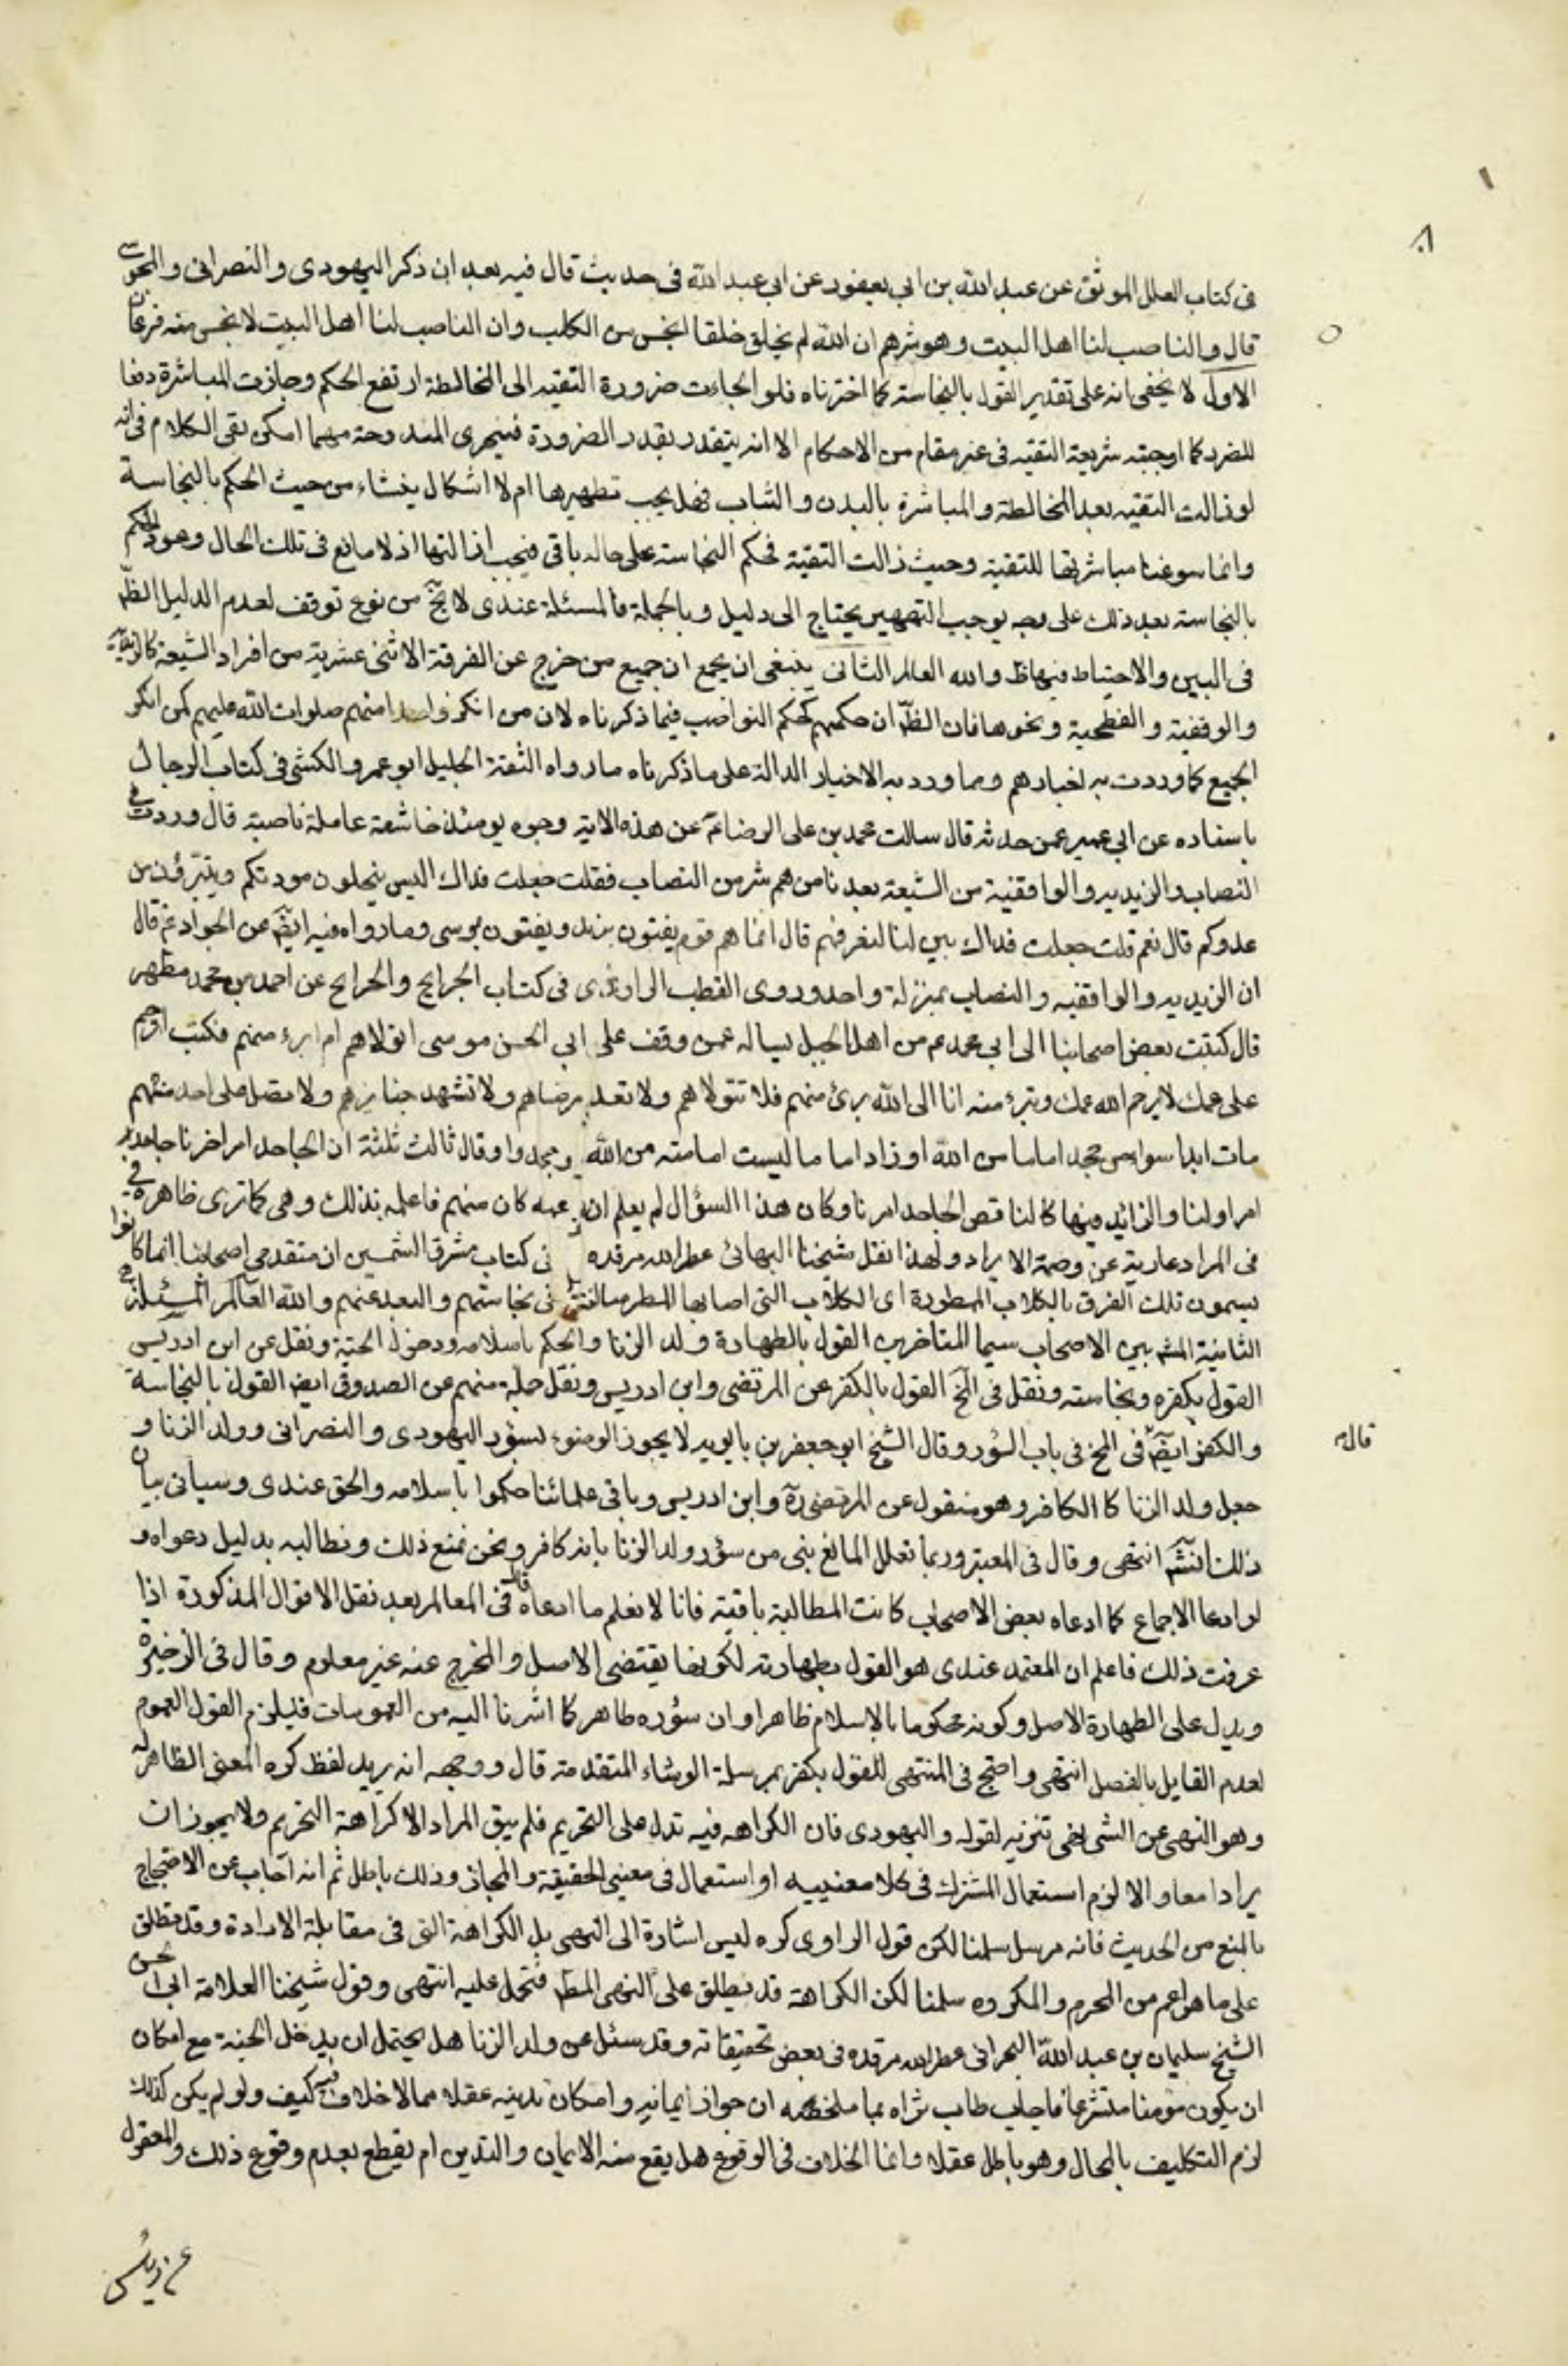 في كتاب العلل الموثق عن عبد الله بن ابي يعفور عن ابي عبد الله في حديث قال فيه بعد ان ذكر اليهودي والنصراني والمجوسي
قال والناصب لنا اهل البيت وهو شرهم ان الله لم يخلق خلقا انجس من الكلب وان الناصب لنا اهل البيت لانجس منه فرعان
الاول لا يخفى انه على تقدير القول بالنجاسة كما اخترناه فلو الجاءت ضرورة التقيه الى المخالطة ارتفع الحكم وجازت المباشرة دفعا
للضرر كما اوجبته شريعة التقيه في غير مقام من الاحكام الا انه يتقدر بقدر الضرورة فيتحرى المندوحة مهما امكن بقى الكلام في انه
لو زالت التقيه بعد المخالطة والمباشرة بالبدن والثياب فهل يجب تطهيرها ام لا اشكال ينشاء من حيث الحكم بالنجاسة
وانما سوغنا مباشرتها للتقية وحيث زالت التقية فحكم النجاسة على حاله باقي فيجب ازالتها اذ لا مانع في تلك الحال وهو الحكم
بالنجاسة بعد ذلك على وجه يوجب التطهير يحتاج الى دليل وبالجملة فالمسئلة عندي لا تخ من نوع توقف لعدم الدليل الظ
في البين والاحتياط فيها ظ والله العالم الثاني ينبغي ان يجمع ان جميع من خرج عن الفرقة الاثنى عشرية من افراد الشيعة كالزيدية
والوقفية والفطحية ونحوها فان الظ ان حكمهم كحكم النواصب فيما ذكرناه لان من انكر واحدا منهم صلوات الله عليهم كمن انكر
الجميع كما وردت به اخبارهم ومما ورد به الاخبار الدالة على ما ذكرناه ما رواه الثقة الجليل ابو عمرو الكشي في كتاب الرجال
باسناده عن ابي عمير عمن حدثه قال سالت محمد بن علي الرضا ع عن هذه الاية وجوه يومئذ خاشعة عاملة ناصبة قال وردت في
النصاب والزيديه والواقفية من الشيعة بعد نا من هم شر من النصاب فقلت جعلت فداك اليس ينحلون مودتكم ويتبرؤن من
عدوكم قال نعم قلت جعلت فداك بين لنا لنعرفهم قال انما هم قوم يفتون بزيد ويفتون بموسى وما رواه فيه ايض عن الجواد ع قال
ان الزيديه والواقفيه والنصاب بمنزلة واحد وروى القطب الراوندي في كتاب الجرايح والخرايج عن احمد بن محمد مطهر
قال كتبت بعض اصحابنا الى ابي محمد ع من اهل الجبل يساله عمن وقف على ابي الحسن موسى اتولاهم ام ابرء منهم فكتب اترحم
على عمك لا يرحم الله عمك وتبرء منه انا الى الله برئ منهم فلا تتولاهم ولا تعد مرضاهم ولا تشهد جنايزهم ولا تصل على احد منهم
مات ابدا سواء من جحد اماما من الله او زاد اماما ليست امامته من الله وجحد وا وقال ثالث ثلثة ان الجاحد امر اخرنا جاحد
امر اولنا والزائد فينا كالناقص الجاحد امرنا وكان هذا السؤال لم يعلم ان عمه كان منهم فاعلمه بذلك وهي كما ترى ظاهرة في
في المراد عارية عن وصمة الايراد ولهذا نقل شيخنا البهائي عطر الله مرقده في كتاب مشرق الشمسين ان متقدمي اصحابنا انما كانوا
يسمون تلك الفرق بالكلاب الممطورة اي الكلاب التي اصابها المطر مبالغة في نجاستهم والبعد عنهم والله العالم المسئلة
الثانية المشه بين الاصحاب سيما المتاخرين القول بالطهارة ولد الزنا والحكم باسلامه ودخول الجنة ونقل عن ابن ادريس
القول بكفره ونجاسته ونقل في الخ القول بالكفر عن المرتضى وابن ادريس ونقل جملة منهم عن الصدوق ايض القول بالنجاسة
والكفر ايض في المخ في باب السؤر وقال الشيخ ابو جعفر بن بابويه لا يجوز الوضوء بسؤر اليهودي والنصراني وولد الزنا و
قاله
جعل ولد الزنا كالكافر وهو منقول عن المرتضى ره وابن ادريس وباقي علمائنا حكموا باسلامه والحق عندي وسياتي بيان
ذلك انش انتهى وقال في المعتبر وربما تعلل المانع بني من سؤر ولد الزنا بانه كافر ونحن نمنع ذلك ونطالبه بدليل دعواه و
لو ادعا الاجماع كما ادعاه بعض الاصحاب كانت المطالبة باقية فانا لا نعلم ما ادعاه قال في المعالم بعد نقل الاقوال المذكورة اذا
عرفت ذلك فاعلم ان المعتمد عندي هو القول بطهارته لكونها يقتضى الاصل والمخرج عنه غير معلوم وقال في الذخيرة
ويدل على الطهارة الاصل وكونه محكوما بالاسلام ظاهرا وان سؤره طاهر كما اشرنا اليه من العمومات فيلزم القول العموم
لعدم القايل بالفصل انتهى واحتج في المنتهى للقول بكفر بمرسلة الوشاء المتقدمة قال ووجهه انه يريد لفظ كره المعنى الظاهر له
وهو النهى عن الشي نهى تنزيه لقوله واليهودي فان الكراهه فيه تدل على التحريم فلم يبق المراد الا كراهة التحريم ولا يجوز ان
يرادا معا والا لزم استعمال المشترك في كلا معنييه او استعمال في معنيي الحقيقة والمجاز وذلك باطل ثم انه اجاب عن الاحتجاج
بالمنع من الحديث فانه مرسل سلمنا لكن قول الراوي كره ليس اشارة الى النهى بل الكراهة التي في مقابلة الارادة وقد تطلق
على ما هو اعم من المحرم والمكروه سلمنا لكن الكراهة قد يطلق على النهى المط فتحمل عليه انتهى وقول شيخنا العلامة ابي الحسن
الشيخ سليمان بن عبد الله البحراني عطر الله مرقده في بعض تحقيقاته وقد سئل عن ولد الزنا هل يحتمل ان يدخل الجنة مع امكان
ان يكون مؤمنا متشرعا فاجاب طاب ثراه بما ملخصه ان جواز ايمانه وامكان تدينه عقلا مما لا خلاف فيه كيف ولو لم يكن كذلك
لزم التكليف بالمحال وهو باطل عقلا وانما الخلاف في الوقوع هل يقع منه الايمان والتدين ام يقطع بعدم وقوع ذلك والمنقول